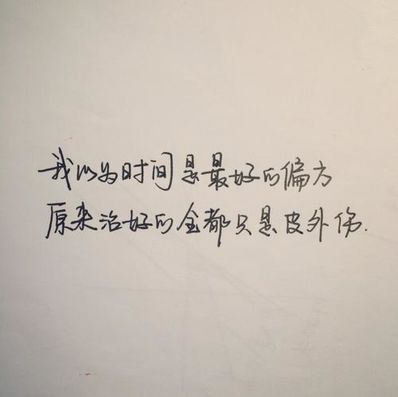 我以为时间是最好的偏方
原来治好的全都只是皮外伤.